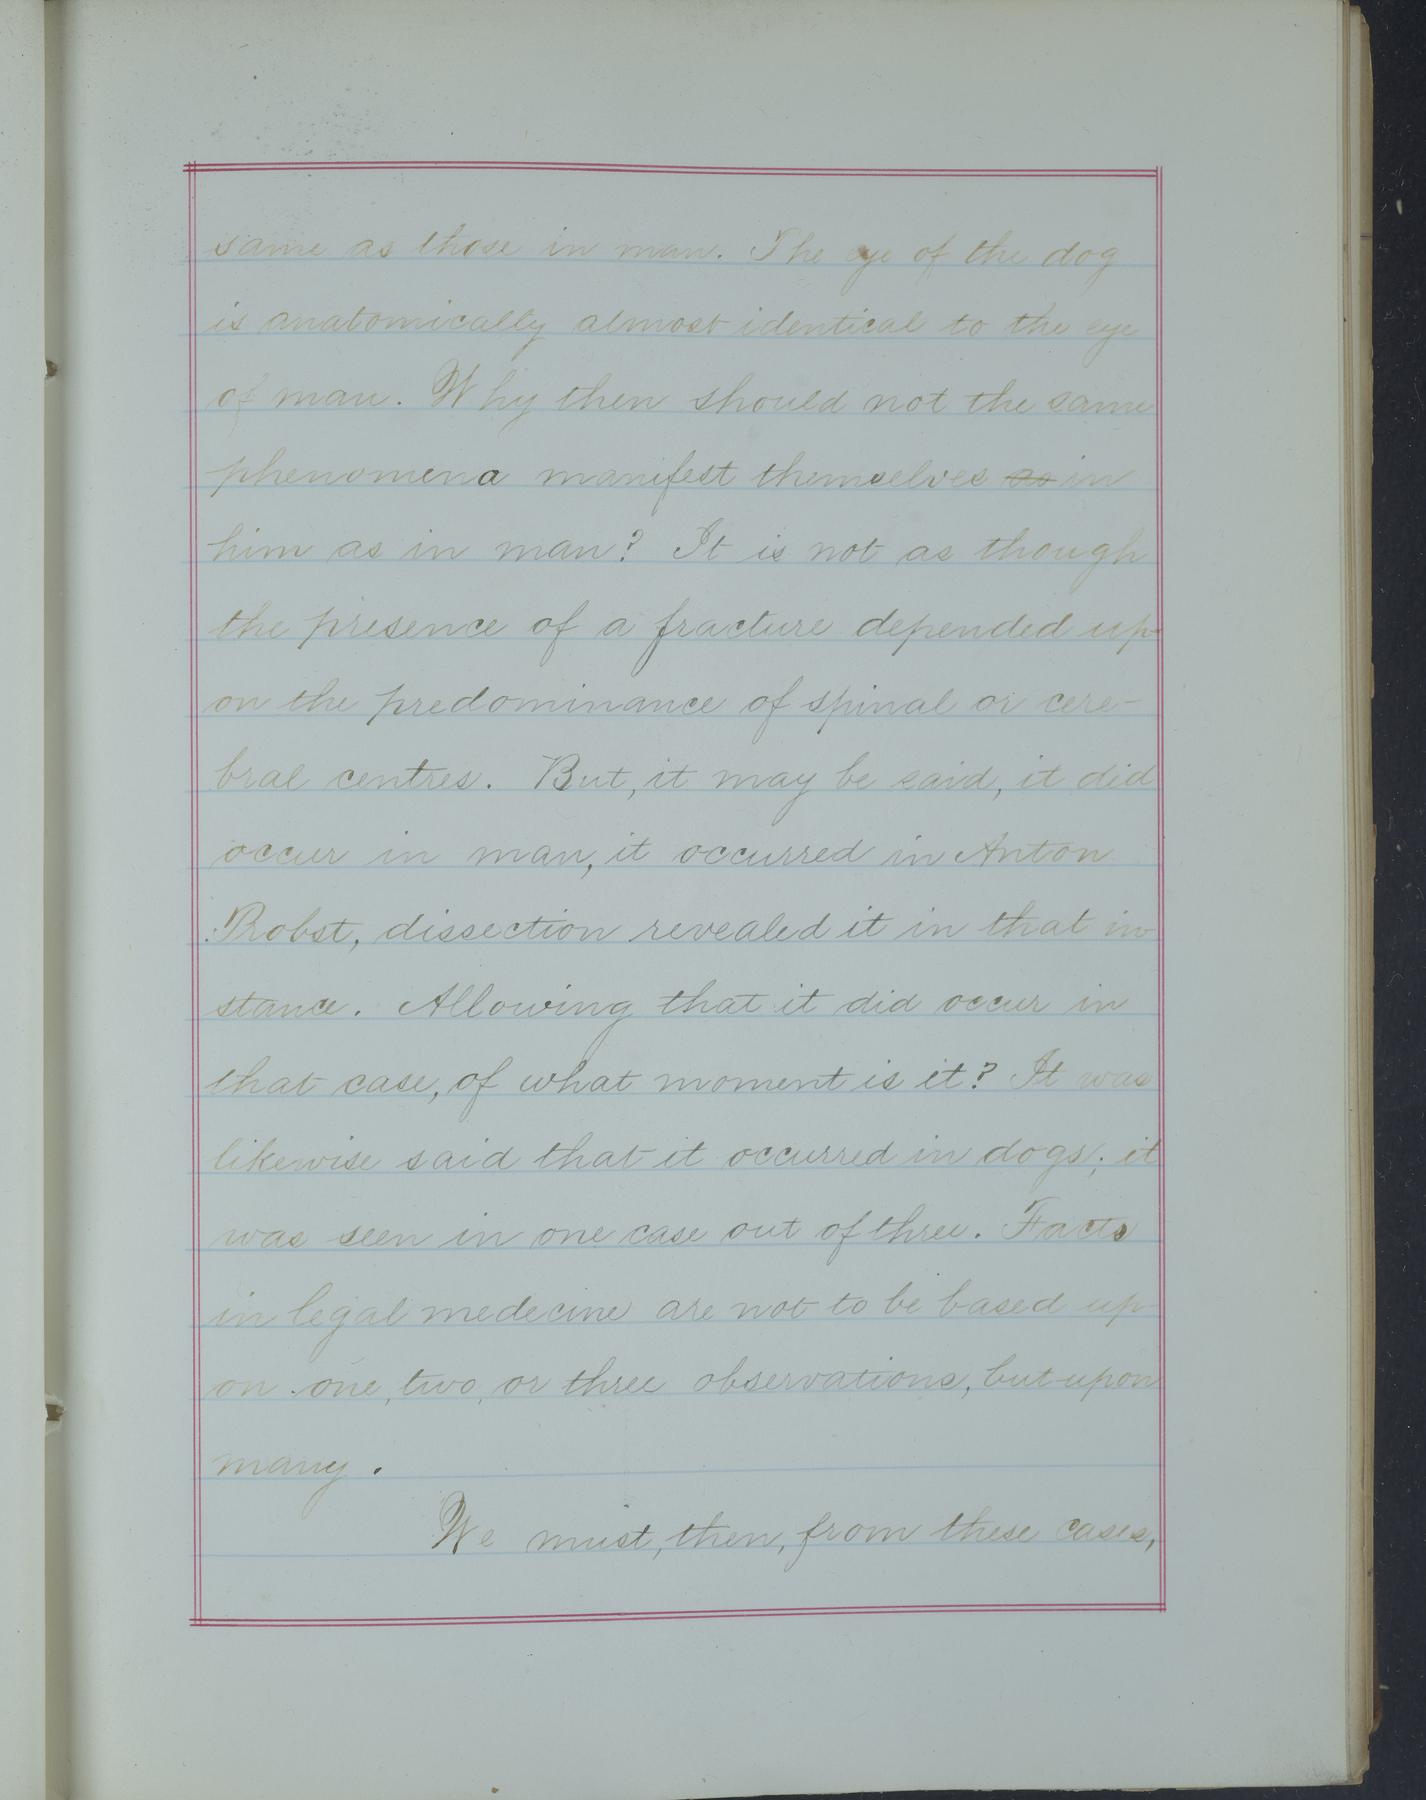 same as those in man. The eye of the dog
is anatomically almost identical to the eye
of man. Why then should not the same
phenomena manifest themselves as in
him as in man? It is not as though
the presence of a fracture depended up-
on the predominance of spinal or cere-
bral centres. But, it may be said, it did
occur in man, it occurred in Anton
Probst, dissection revealed it in that in-
stance. Allowing that it did occur in
that case, of what moment is it? It was
likewise said that it occurred in dogs; it
was seen in one case out of three. Facts
in legal medecine are not to be based up-
on one, two, or three observations, but upon
many.
We must, then, from these cases,